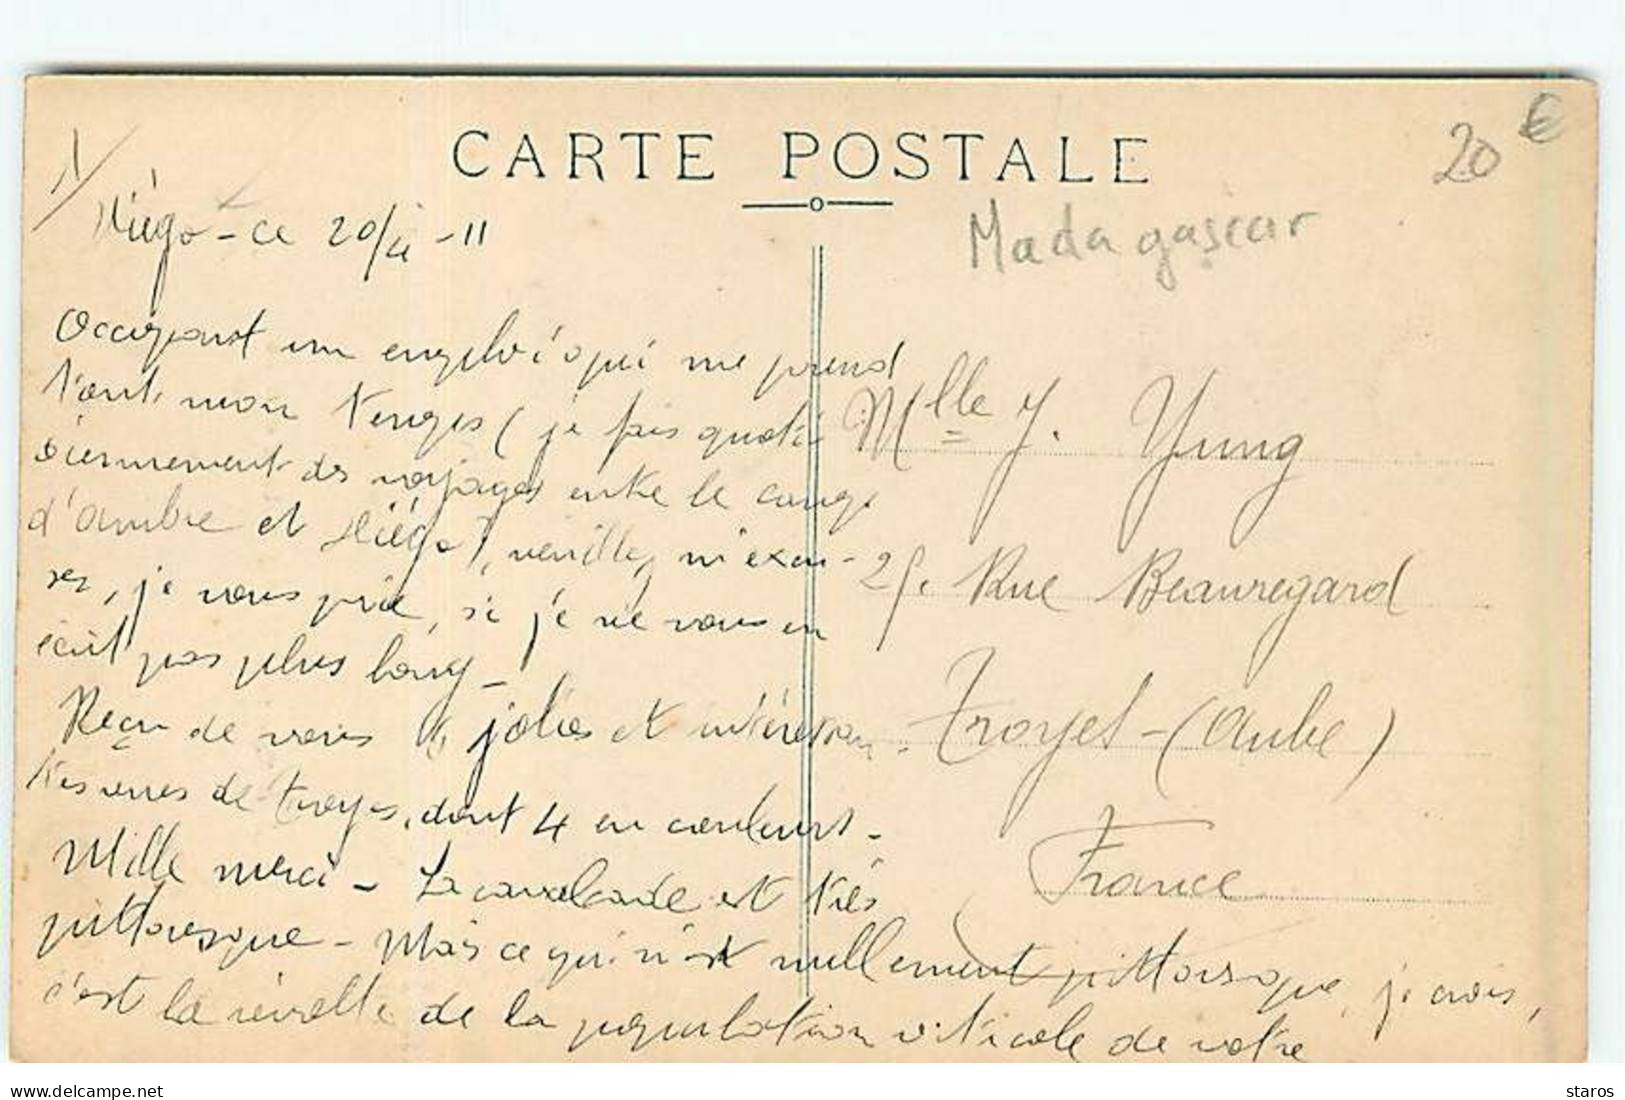 CARTE POSTALE
20 €
Madagascar
1/
Diégo - ce 20/4 - 11
Occupant un emploi qui me prend
tout mon temps (je fais quoti-
diennement des voyages entre le camp
d'Ambre et Diégo), veuillez m'excu-
ser, je vous prie, si je ne vous en
écrit pas plus long -
Reçu de vous jolies et intéressan-
tes vues de Troyes, dont 4 en couleurs -
Mille merci - La cavalcade est très
pittoresque - Mais ce qui n'est nullement pittoresque, je crois,
c'est la révolte de la population viticole de votre
Mlle J. Yung
25, Rue Beauregard
Troyes - (Aube)
France
Delcampe.net
staros